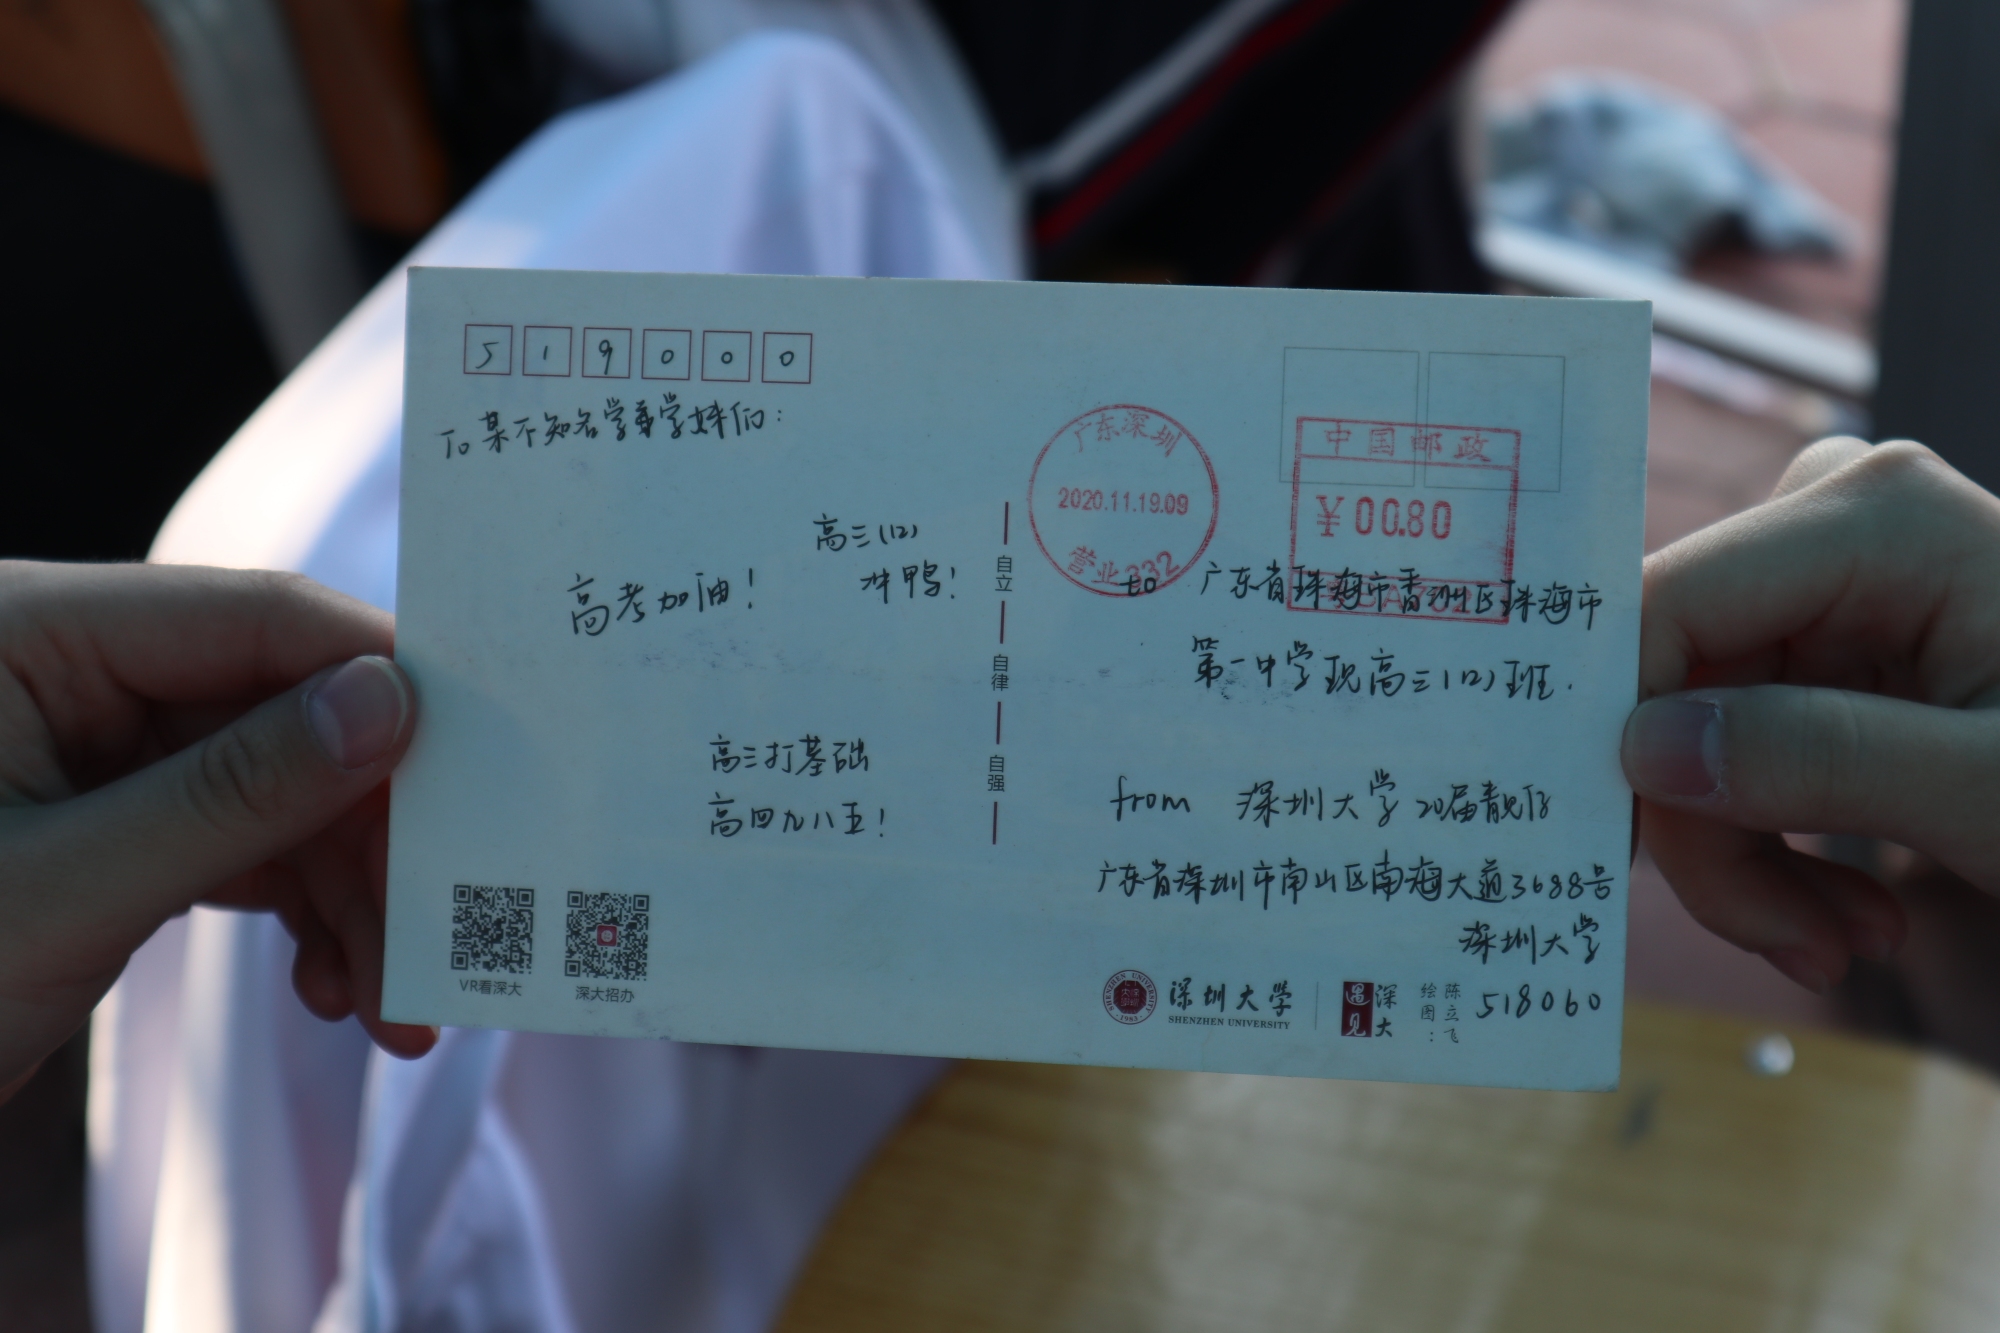 519000
To 某不知名学弟学妹们：
高三(12)
冲鸭！
高考加油！
高三打基础
高四九八五！
VR看深大
深大招办
自立
自律
自强
广东深圳
2020.11.19.09
营业332
中国邮政
￥00.80
to 广东省珠海市香洲区珠海市
第一中学现高三(12)班.
from 深圳大学 20届靓仔
广东省深圳市南山区南海大道3688号
深圳大学
518060
深圳大学
SHENZHEN UNIVERSITY
遇见
深大
绘图：
陈立飞